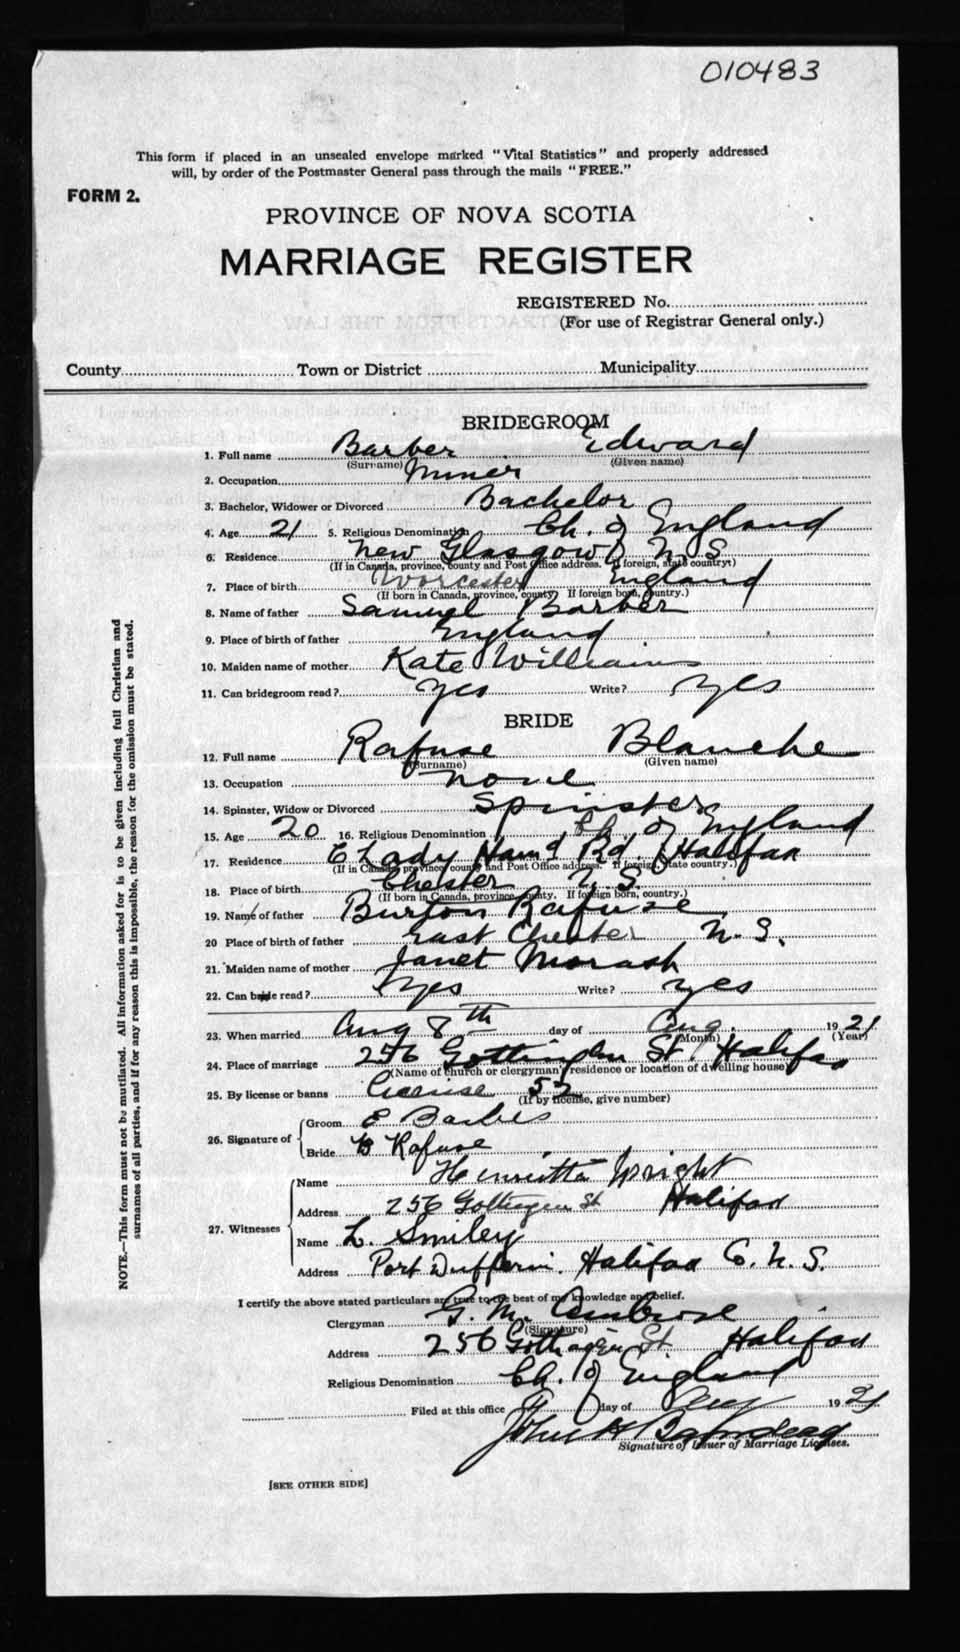 010483
This form if placed in an unsealed envelope marked "Vital Statistics" and properly addressed
will, by order of the Postmaster General pass through the mails "FREE."
FORM 2.
PROVINCE OF NOVA SCOTIA
MARRIAGE REGISTER
REGISTERED No.
(For use of Registrar General only.)
County Town or District Municipality
BRIDEGROOM
1. Full name Barber Edward
(Surname) (Given name)
2. Occupation Miner
3. Bachelor, Widower or Divorced Bachelor
4. Age 21 5. Religious Denomination Ch. of England
6. Residence New Glasgow N S
(If in Canada, province, county and Post Office address. If foreign, state country.)
7. Place of birth Worcester England
(If born in Canada, province, county. If foreign born, country.)
8. Name of father Samuel Barber
9. Place of birth of father England
10. Maiden name of mother Kate Williams
11. Can bridegroom read? yes Write? yes
BRIDE
12. Full name Rafuse Blanche
(Surname) (Given name)
13. Occupation none
14. Spinster, Widow or Divorced Spinster
15. Age 20 16. Religious Denomination Ch. of England
17. Residence Lady Ham'd Rd. Halifax
(If in Canada, province, county and Post Office address. If foreign, state country.)
18. Place of birth Chester N.S.
(If born in Canada, province, county. If foreign born, country.)
19. Name of father Burton Rafuse
20 Place of birth of father East Chester N.S.
21. Maiden name of mother Janet Morash
22. Can bride read? yes Write? yes
23. When married Aug 8th day of Aug. 1921
(Month) (Year)
24. Place of marriage 256 Gottingen St. Halifax
(Name of church or clergyman's residence or location of dwelling house)
25. By license or banns license 52
(If by license, give number)
26. Signature of
Groom E Barber
Bride B Rafuse
27. Witnesses
Name Henrietta Wright
Address 256 Gottingen St Halifax
Name L. Smiley
Address Port Dufferin. Halifax Co. N.S.
I certify the above stated particulars are true to the best of my knowledge and belief.
Clergyman G. M. Ambrose
(Signature)
Address 256 Gottingen St. Halifax
Religious Denomination Ch. of England
Filed at this office day of 1921
John H
Signature of Issuer of Marriage Licenses.
[SEE OTHER SIDE]
NOTE.—This form must not be mutilated. All information asked for is to be given including full Christian and
surnames of all parties, and if for any reason this is impossible, the reason for the omission must be stated.